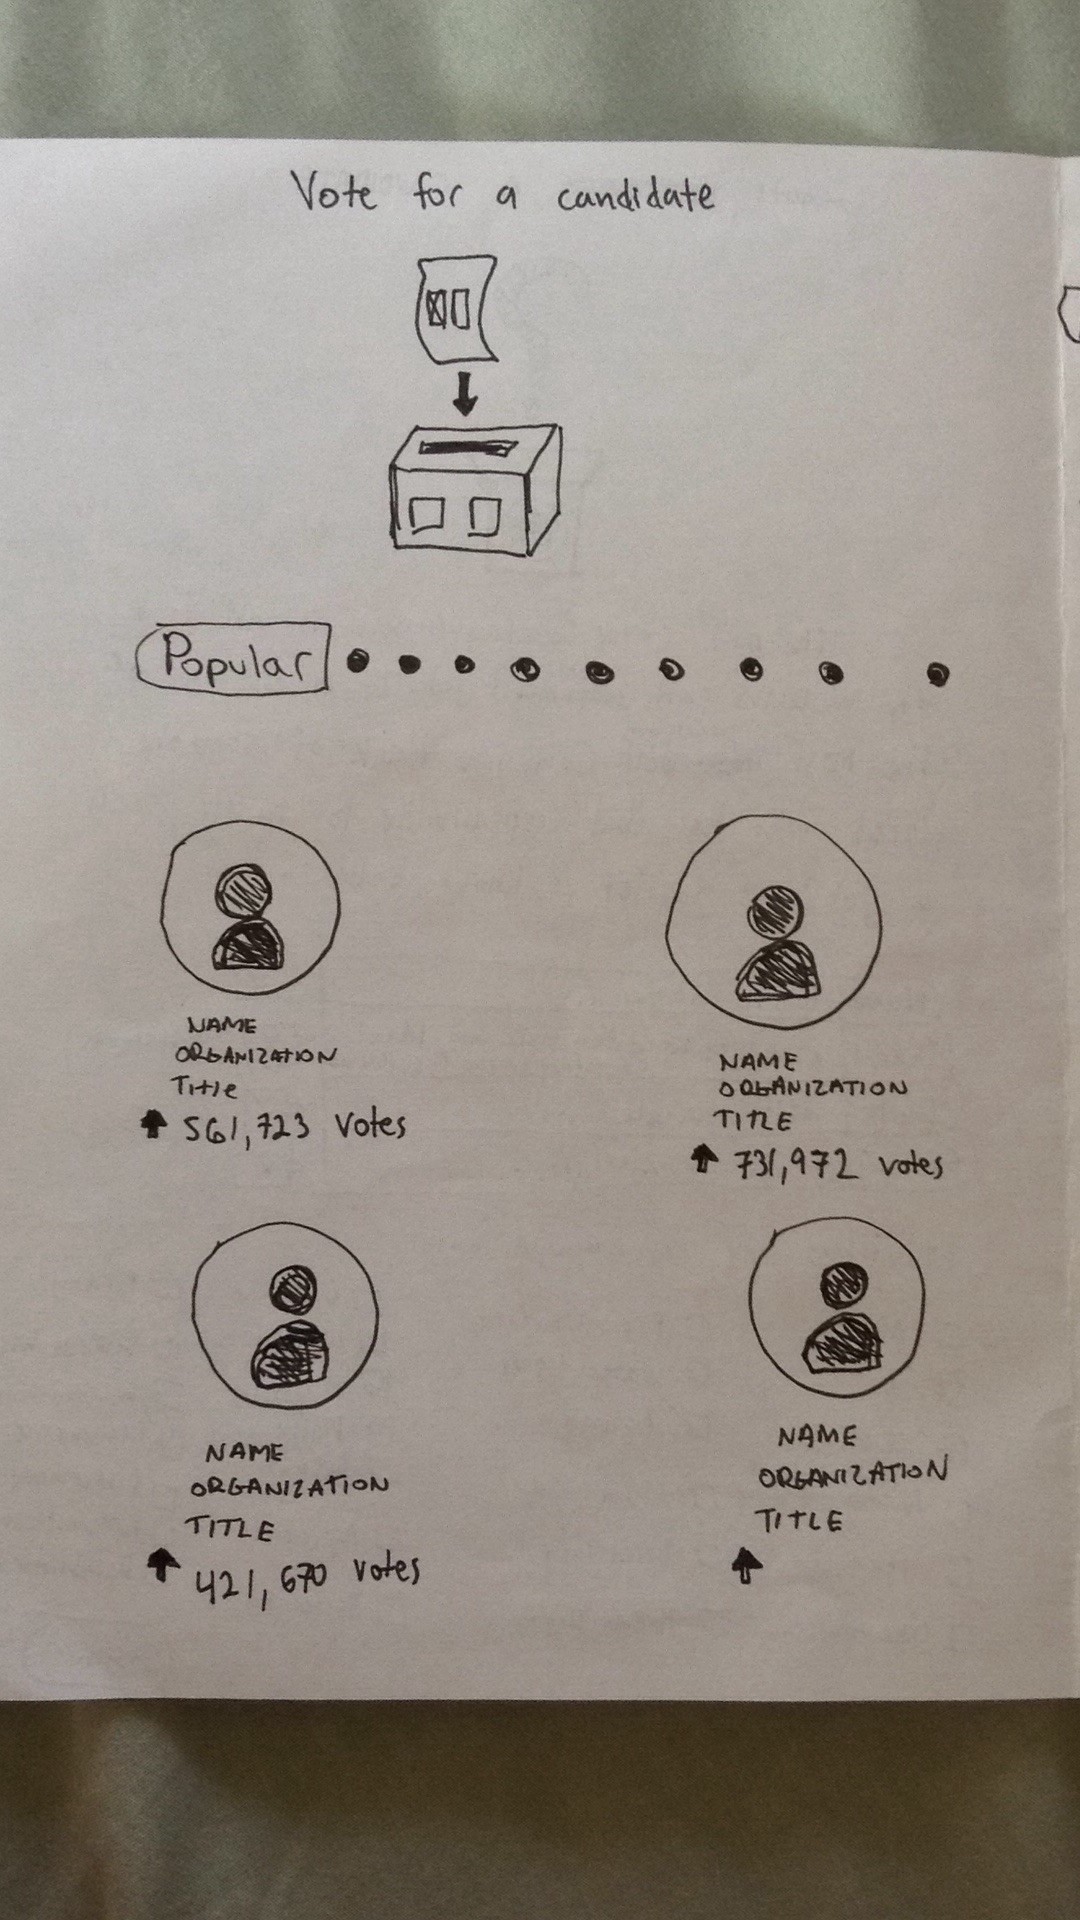 Vote for a candidate
Popular
NAME
ORGANIZATION
Title
561,723 Votes
NAME
ORGANIZATION
TITLE
731,972 votes
NAME
ORGANIZATION
TITLE
421,670 votes
NAME
ORGANIZATION
TITLE